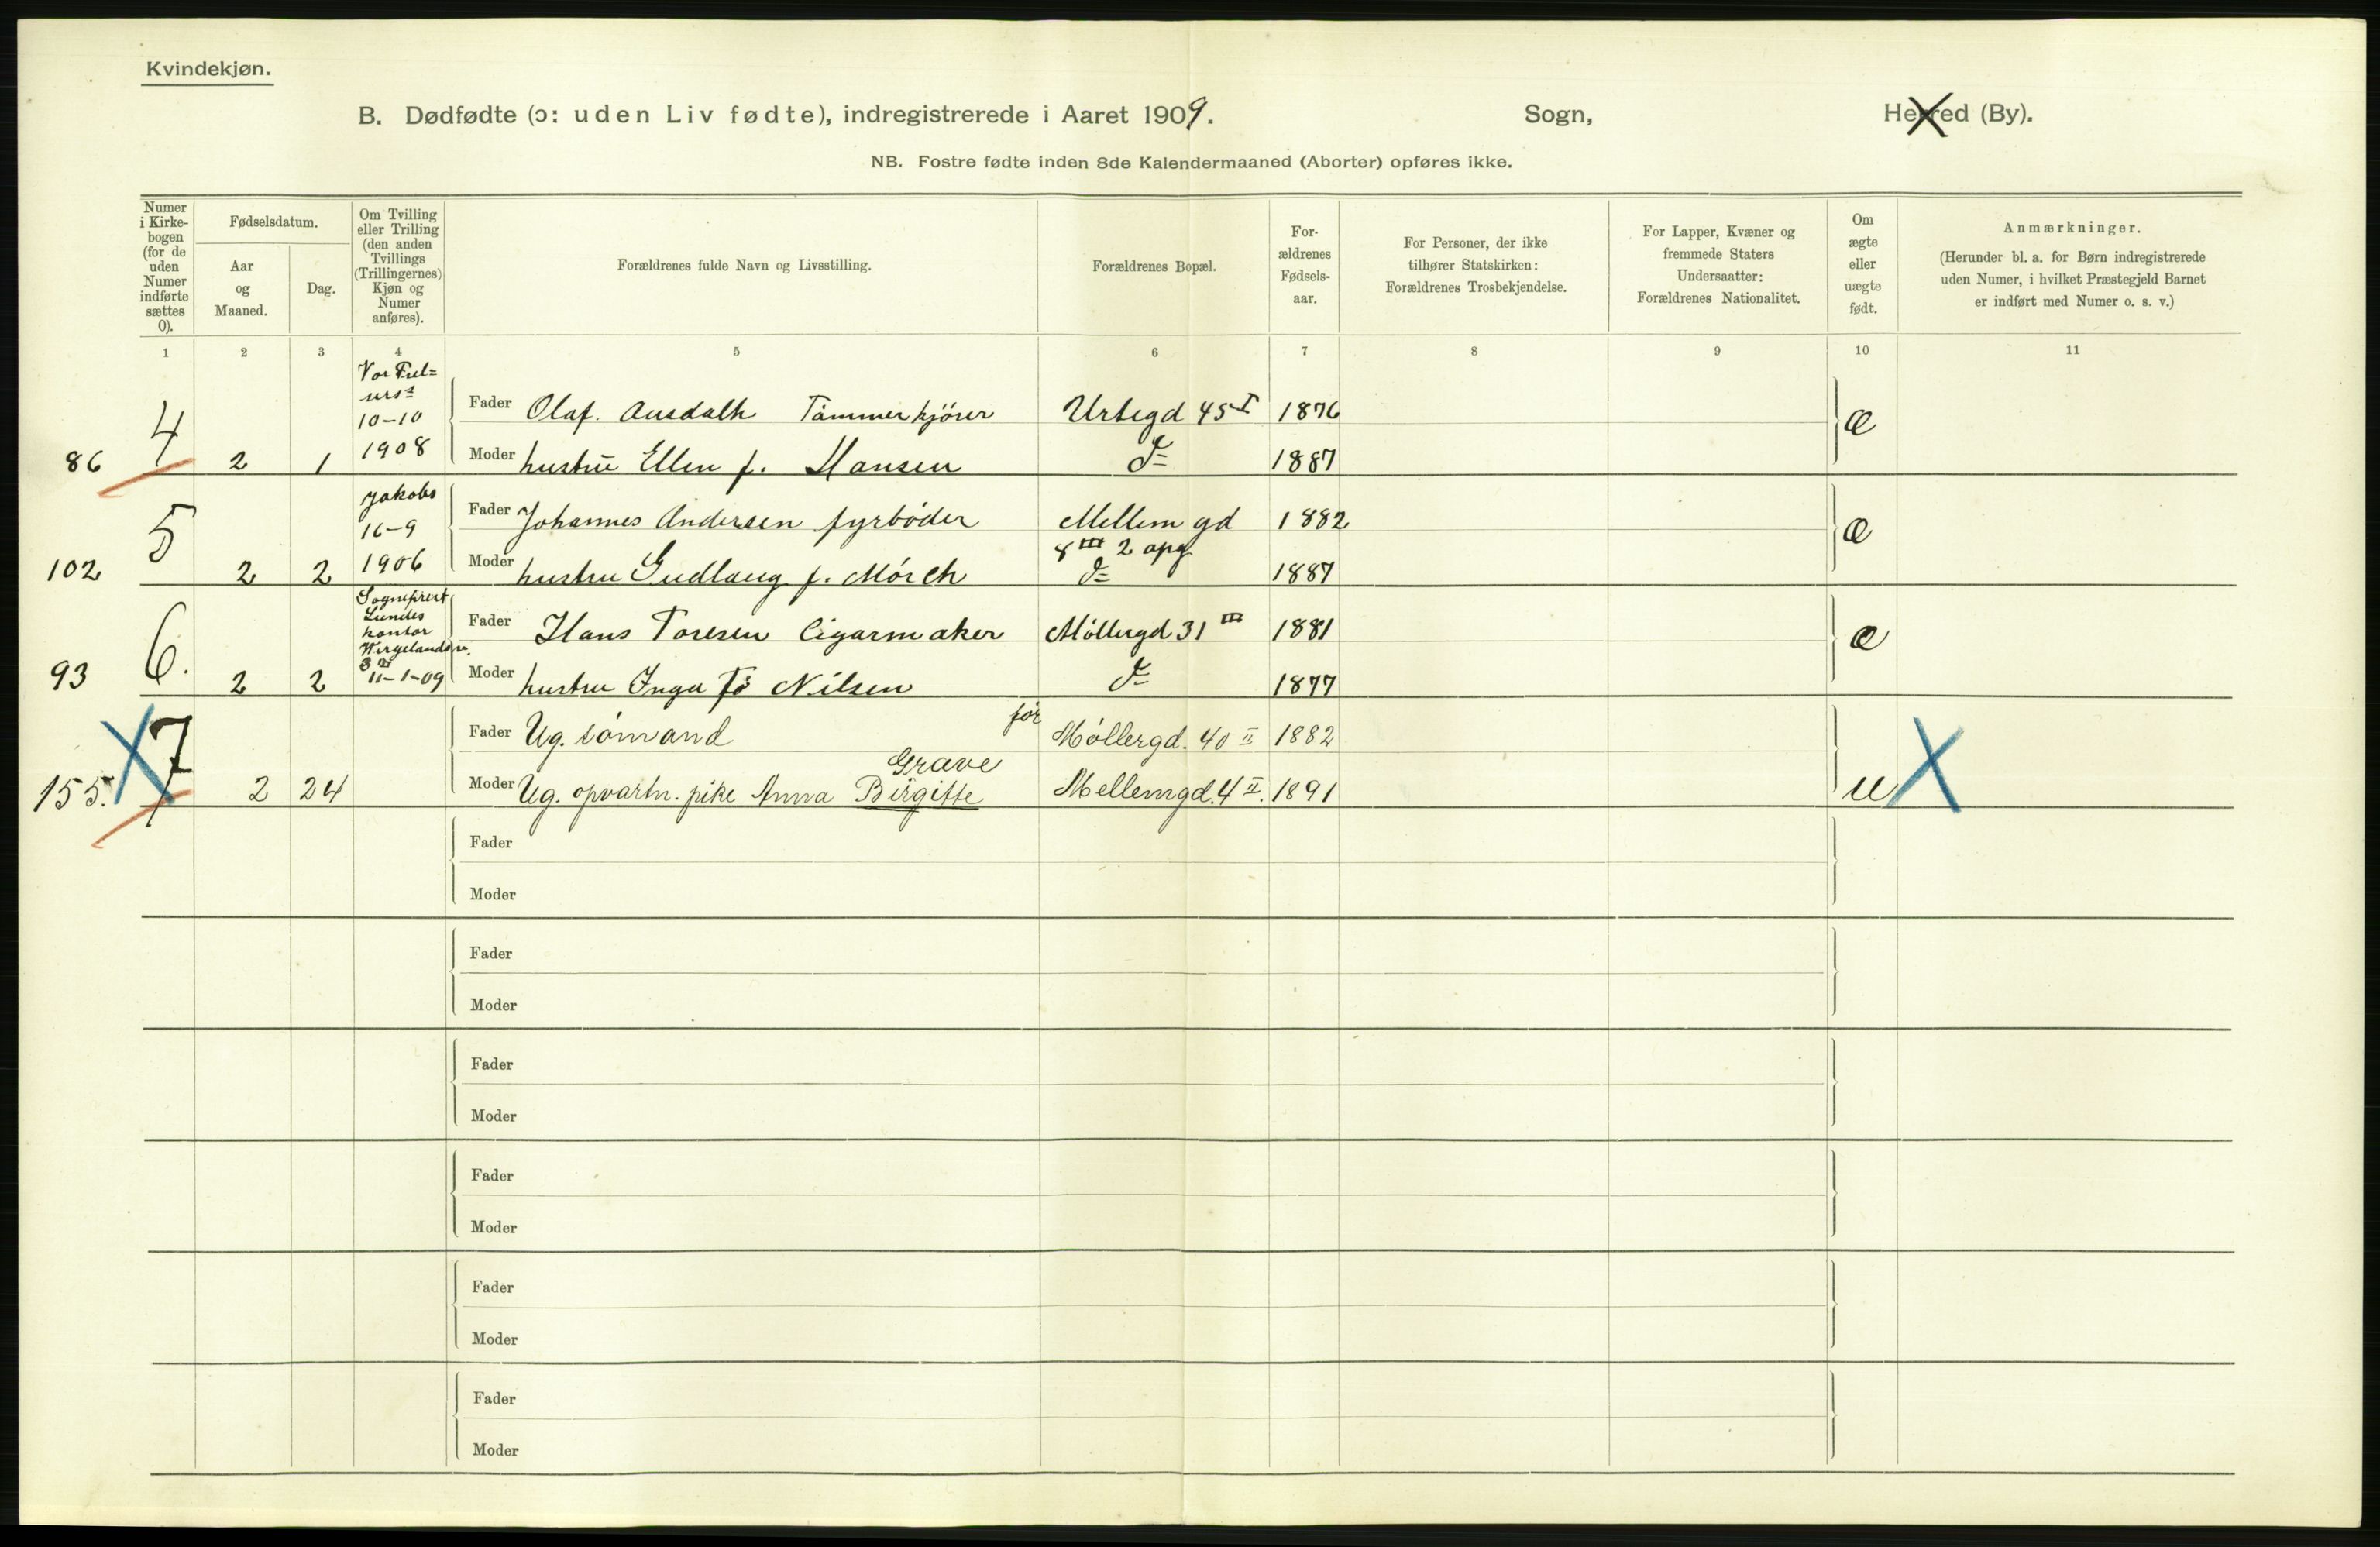 Kvindekjøn.
B. Dødfødte (ɔ: uden Liv fødte), indregistrerede i Aaret 1909. Sogn, Herred (By).
NB. Fostre fødte inden 8de Kalendermaaned (Aborter) opføres ikke.
Numer i Kirke-bogen (for de uden Numer indførte sættes 0).
Fødselsdatum.
Aar og Maaned.
Dag.
Om Tvilling eller Trilling (den anden Tvillings (Trillingernes) Kjøn og Numer anføres).
Forældrenes fulde Navn og Livsstilling.
Forældrenes Bopæl.
For-ældrenes Fødsels-aar.
For Personer, der ikke tilhører Statskirken: Forældrenes Trosbekjendelse.
For Lapper, Kvæner og fremmede Staters Undersaatter: Forældrenes Nationalitet.
Om ægte eller uægte født.
Anmærkninger.
(Herunder bl. a. for Børn indregistrerede uden Numer, i hvilket Præstegjeld Barnet er indført med Numer o. s. v.)
1 2 3 4 5 6 7 8 9 10 11
Vor Frel=
sers
10-10
1908
Fader Olaf Ausdalh Tömmerkjörer Urtegd 45 I 1876
86 4 2 1 Moder hustru Ellen f. Hansen do 1887 Æ
Jakobs
16-9
1906
Fader Johannes Andersen fyrböder Mellemgd 8 III 2 opg 1882
102 5 2 2 Moder hustru Gudlaug f. Mörch do 1887 Æ
Sogneprest
Lundes
kontor
Wergelandsv.
3 II
11-1-09
Fader Hans Toresen Cigarmaker Möllergd 31 III 1881
93 6. 2 2 Moder hustru Inga f. Nilsen do 1877 Æ
Fader Ug. sömand før Møllergd. 40 II 1882
155. X 7 2 24 Moder Ug. opvartn. pike Anna Birgitte Grave Mellemgd. 4 II. 1891 U X
Fader
Moder
Fader
Moder
Fader
Moder
Fader
Moder
Fader
Moder
Fader
Moder